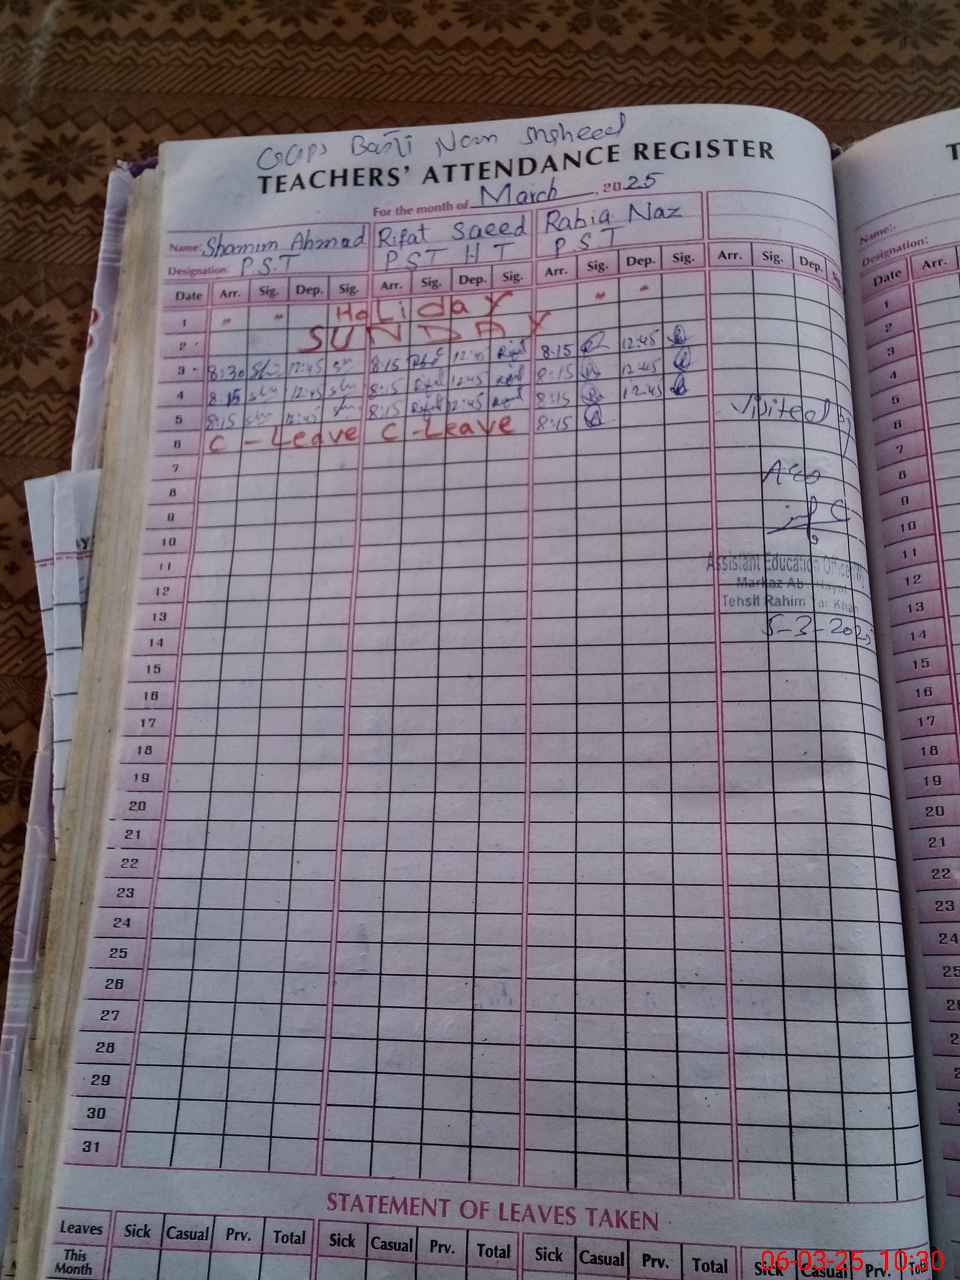 GGPS Basti
TEACHERS' ATTENDANCE REGISTER
For the month of March 2025
Name: Shamim Ahmad Rifat Saeed Rabia Naz
Designation: P.S.T PST HT PST
Date Arr. Sig. Dep. Sig. Arr. Sig. Dep. Sig. Arr. Sig. Dep. Sig. Arr. Sig. Dep.
1 " " HoLiday " "
2 SUNDAY
3 8:30 12:45 8:15 8:15 12:45
4 8:15 12:45 8:15 12:45 8:15 12:45
5 8:15 12:45 8:15 12:45 8:15 12:45
6 C-Leave C-Leave 8:15
Visited by
7
8
AEO
9
10
11
Assistant Education
12
Markaz
Tehsil Rahim
13
5-3-2025
14
15
16
17
18
19
20
21
22
23
24
25
26
27
28
29
30
31
STATEMENT OF LEAVES TAKEN
Leaves Sick Casual Prv. Total Sick Casual Prv. Total Sick Casual Prv. Total Sick Casual Prv.
This
Month
Name:-
Designation:
Date Arr.
1
2
3
4
5
6
7
8
9
10
11
12
13
14
15
16
17
18
19
20
21
22
23
24
25
06-03-25 10:30